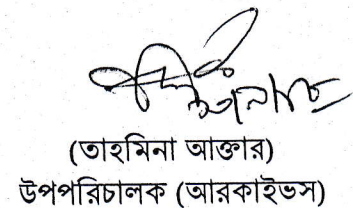 (তাহমিনা আক্তার)
উপপরিচালক (আরকাইভস)